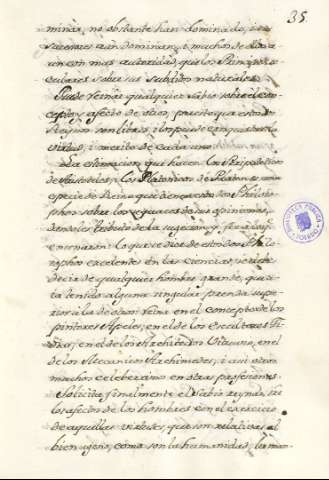 35.
minar, no obstante han dominado, i en
aun dominan, muchos de ellos
aun con mas autoridad, que los Principes
culares sobre sus subditos naturales.
Puede reinar qualquier sabio sobre el con-
cepto, i afecto de otros, puesto que estos
Reynos son libres, i los puede conquistar la
virtud, i merito de cada uno.
La estimacion, que hacen los Peripateticos
de Aristoteles, los Platonicos de Platon, es una
especie de Reino que tienen estos Philoso-
phos sobre los sequaces de sus opiniones,
dandoles tributo de la sugecion,
lo que se dice de estos dos Philo-
sophos excelente en las Ciencias, se debe
decir de qualquier hombre grande, que a-
ia tenido alguna singular prenda supe-
rior à la de otros. Reina en el concepto de los
pintores Apeles, en el de los Escultores Fi-
dias, en el de los Architectos Vitruvio, en el
de los Mecanicos Archimedes, i assi otros
muchos celeberrimos en otras profesiones.
Solicita finalmente el Sabio reynar, en
los afectos de los hombres con el exercicio
de aquellas virtudes, que son relativas al
bien ageno, como son la humanidad, la man-
BIBLIOTECA PUBLICA
TOLEDO